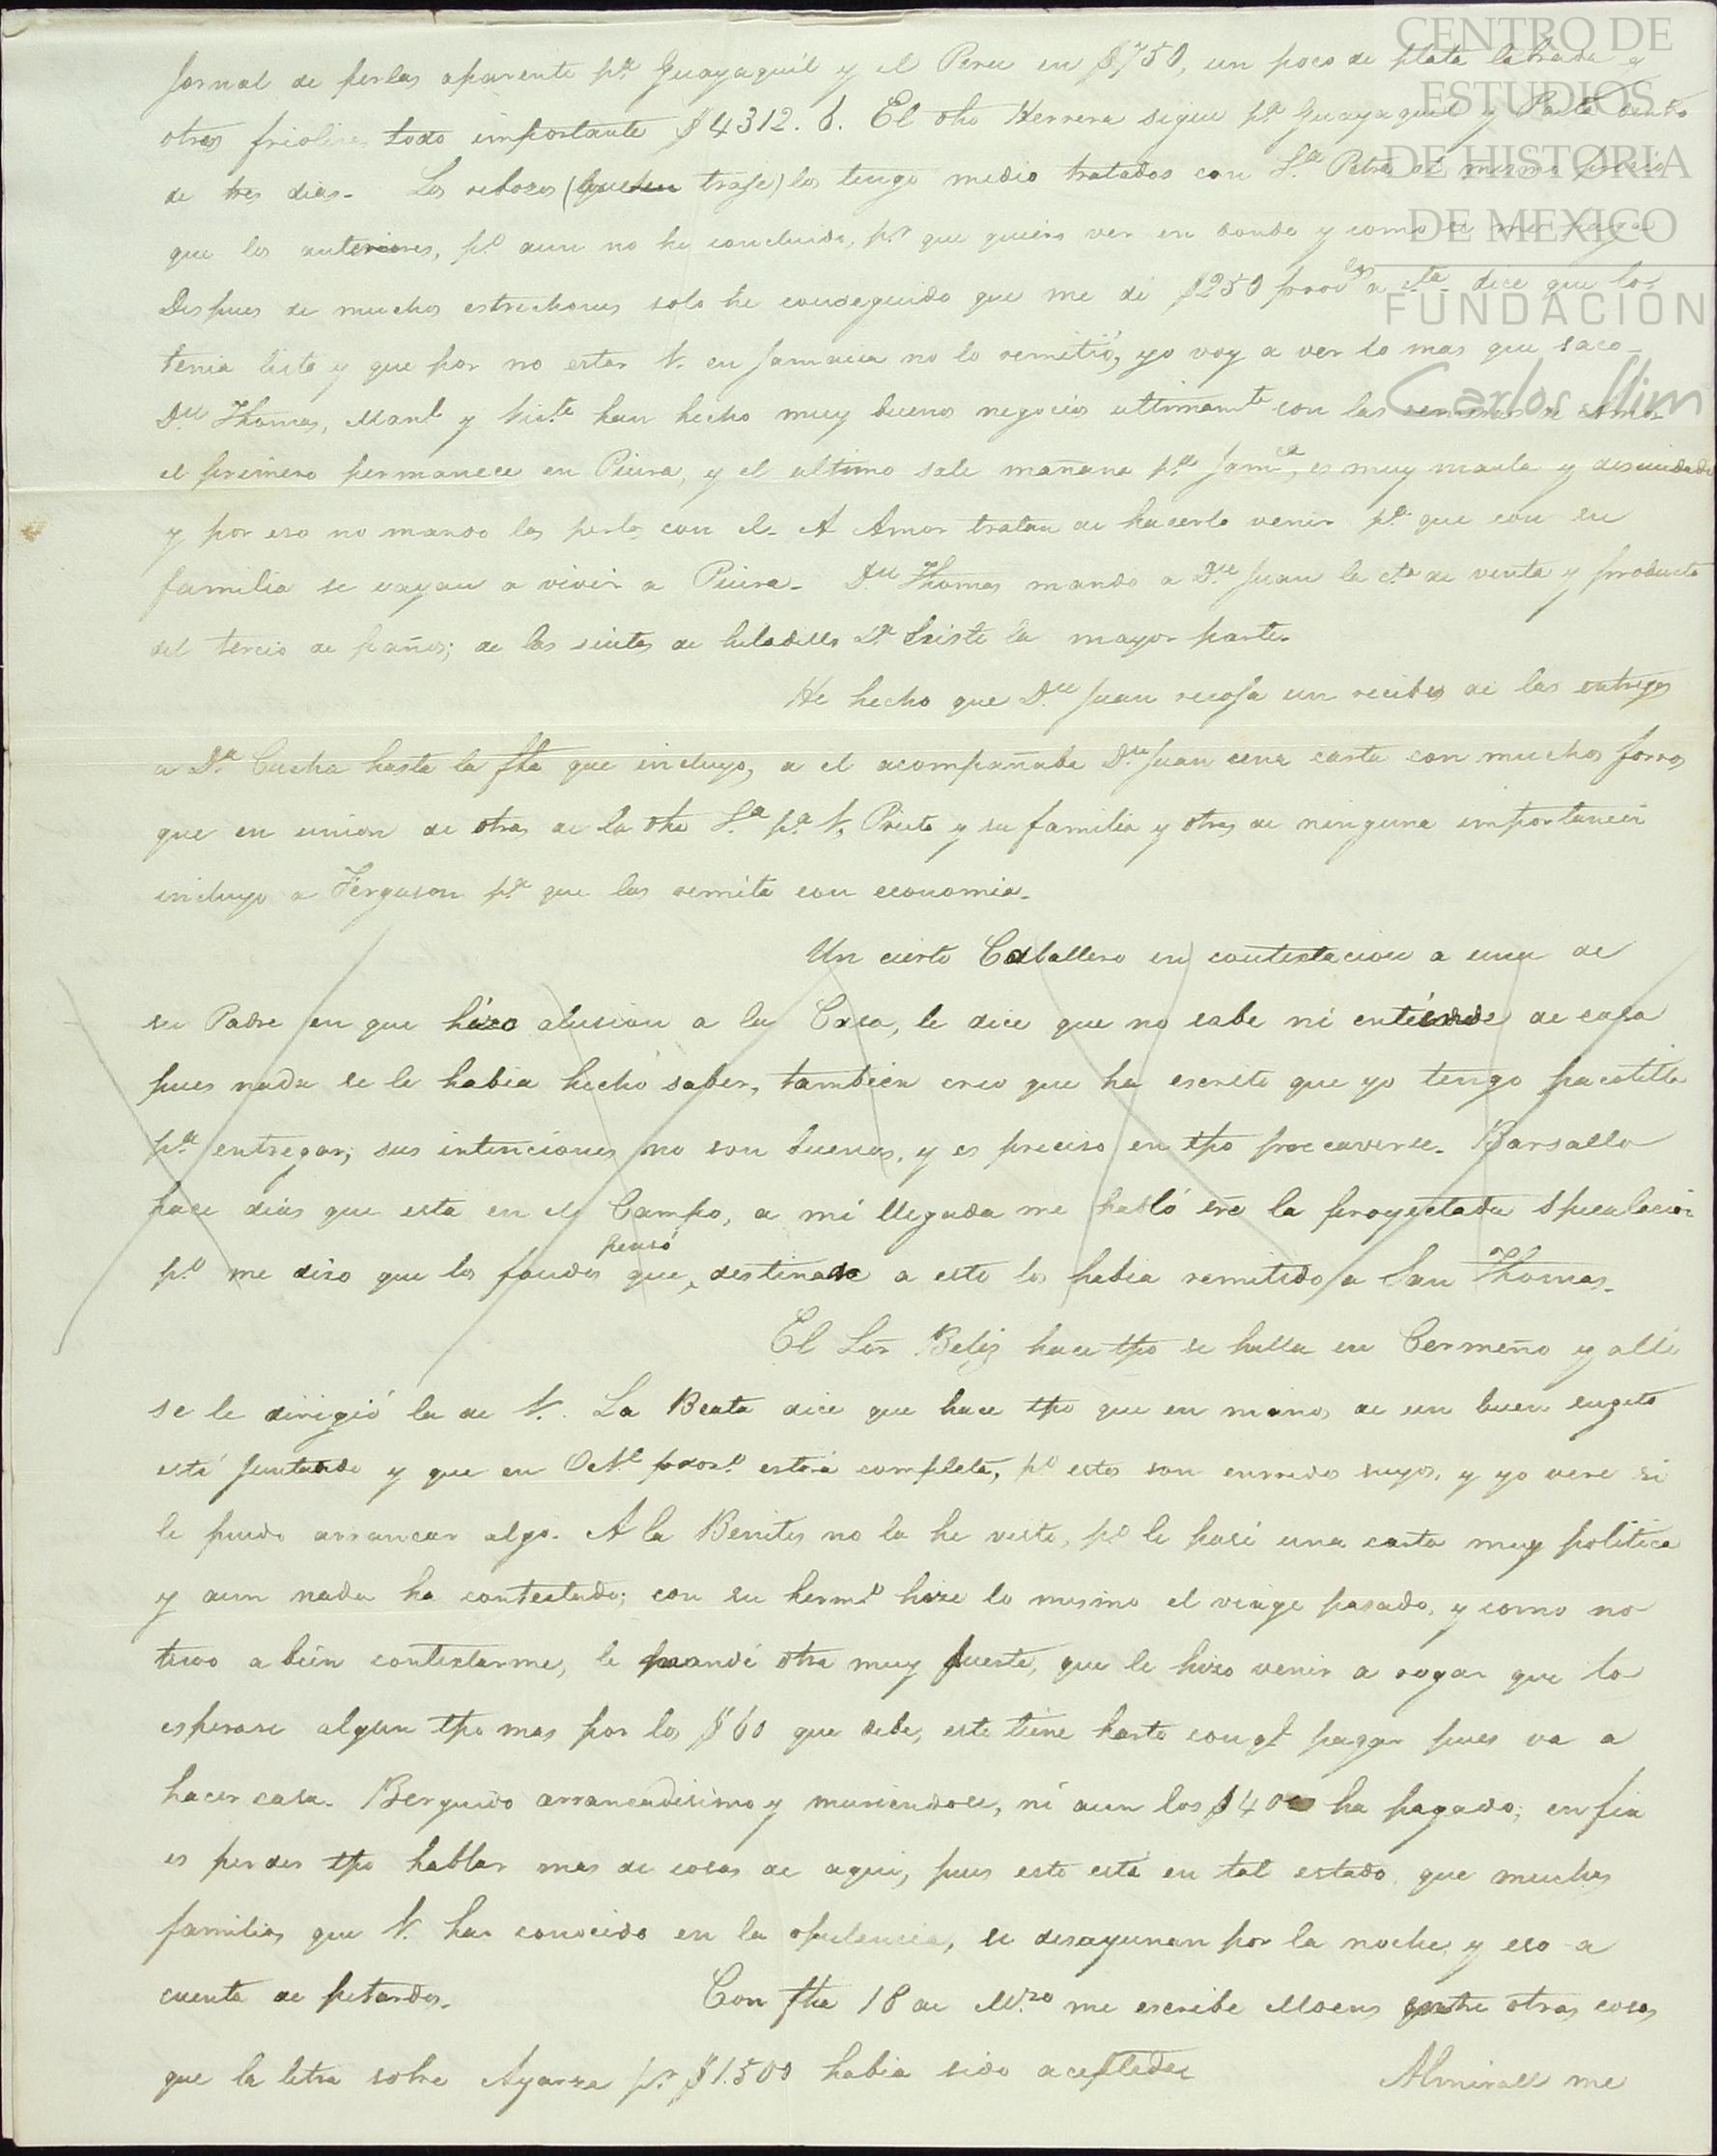 CENTRO DE
ESTUDIOS
DE HISTORIA
DE MEXICO
FUNDACIÓN
Carlos Slim
Jornal de perlas aparente p.ª Guayaquil y el Peru en $750, un poco de plata labrada y
otras todo importante $4312. 6. El dho Herrera sigue p.ª Guayaquil y Paita dentro
de tres dias. Los rebozos ( traje) los tengo medio tratados con S.ª Petra al mismo precio
que los anteriores, p.º aun no he concluido, p.r que quiero ver en donde y como se me paga
Despues de muchos estrechones solo he conseguido que me dé $250 a cta. dice que los
tenia listo y que por no estar V. en Jamaica no lo remitió, yo voy a ver lo mas que saco.
D.n Thomas, Man.l y Vic.te han hecho muy buenos negocios ultimam.te con las de Amor
el primero permanece en Piura, y el ultimo sale mañana p.ª Jam.ca, es muy maula y descuidado
y por eso no mando las perlas con el. A Amor tratan de hacerlo venir p.ª que con su
familia se vayan a vivir a Piura. D.n Thomas mandó a D.n Juan la c.ta de venta y producto
del tercio de paños; de las sintas de hiladillo existe la mayor parte.
He hecho que D.n Juan recoja un recibo de las entregas
a D.ª Cucha hasta la fha que incluyo, a el acompañaba D.n Juan una carta con muchos forros
que en union de otras de la dha S.ª p.ª V, Prieto y su familia y otras de ninguna importancia
incluyo a Ferguson p.ª que las remita con economia.
Un cierto Caballero en contestacion a una de
su Padre en que hizo alusion a la Casa, le dice que no sabe ni entiende de casa
pues nada se le habia hecho saber, tambien creo que ha escrito que yo tengo pacotilla
p.ª entregar; sus intenciones no son buenas, y es preciso en tpo precaverse. Barsallo
hace dias que esta en el Campo, a mi llegada me habló sre la proyectada speculacion
pensó
p.º me dixo que los fondos que destinado a esto los habia remitido a San Thomas.
El Sor. Beliz hace tpo se halla en Cermeño y alli
se le dirigió la de V. La Beata dice que hace tpo que en manos de un buen sugeto
está juntando y que en Oct.e estará completa, p.º estos son enredos suyos, y yo veré si
le puedo arrancar algo. A la Benites no la he visto, p.º le pasé una carta muy politica
y aun nada ha contestado; con su herm.º hize lo mismo el viage pasado, y como no
tuvo a bien contestarme, le mandé otra muy fuerte, que le hizo venir a rogar que lo
esperase algun tpo mas por los $60 que debe, este tiene harto con q.e pagar pues va a
hacer casa. Berguido arrancadisimo y muriendose, ni aun los $40 ha pagado; en fin
es perder tpo hablar mas de cosas de aqui, pues esto está en tal estado, que muchas
familias que V. ha conocido en la opulencia, se desayunan por la noche, y eso a
cuenta de petardos. Con fha 18 de M.zo me escribe Moens entre otras cosas
que la letra sobre Ayarza p.r $1.500 habia sido aceptada Almirall me